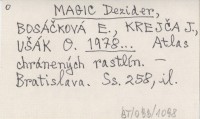 0
MAGIC Dezider,
BOSÁČKOVÁ E., KREJČA J.,
UŠÁK O. 1978... Atlas
chránených rastlín. –
Bratislava. Ss. 258, il.